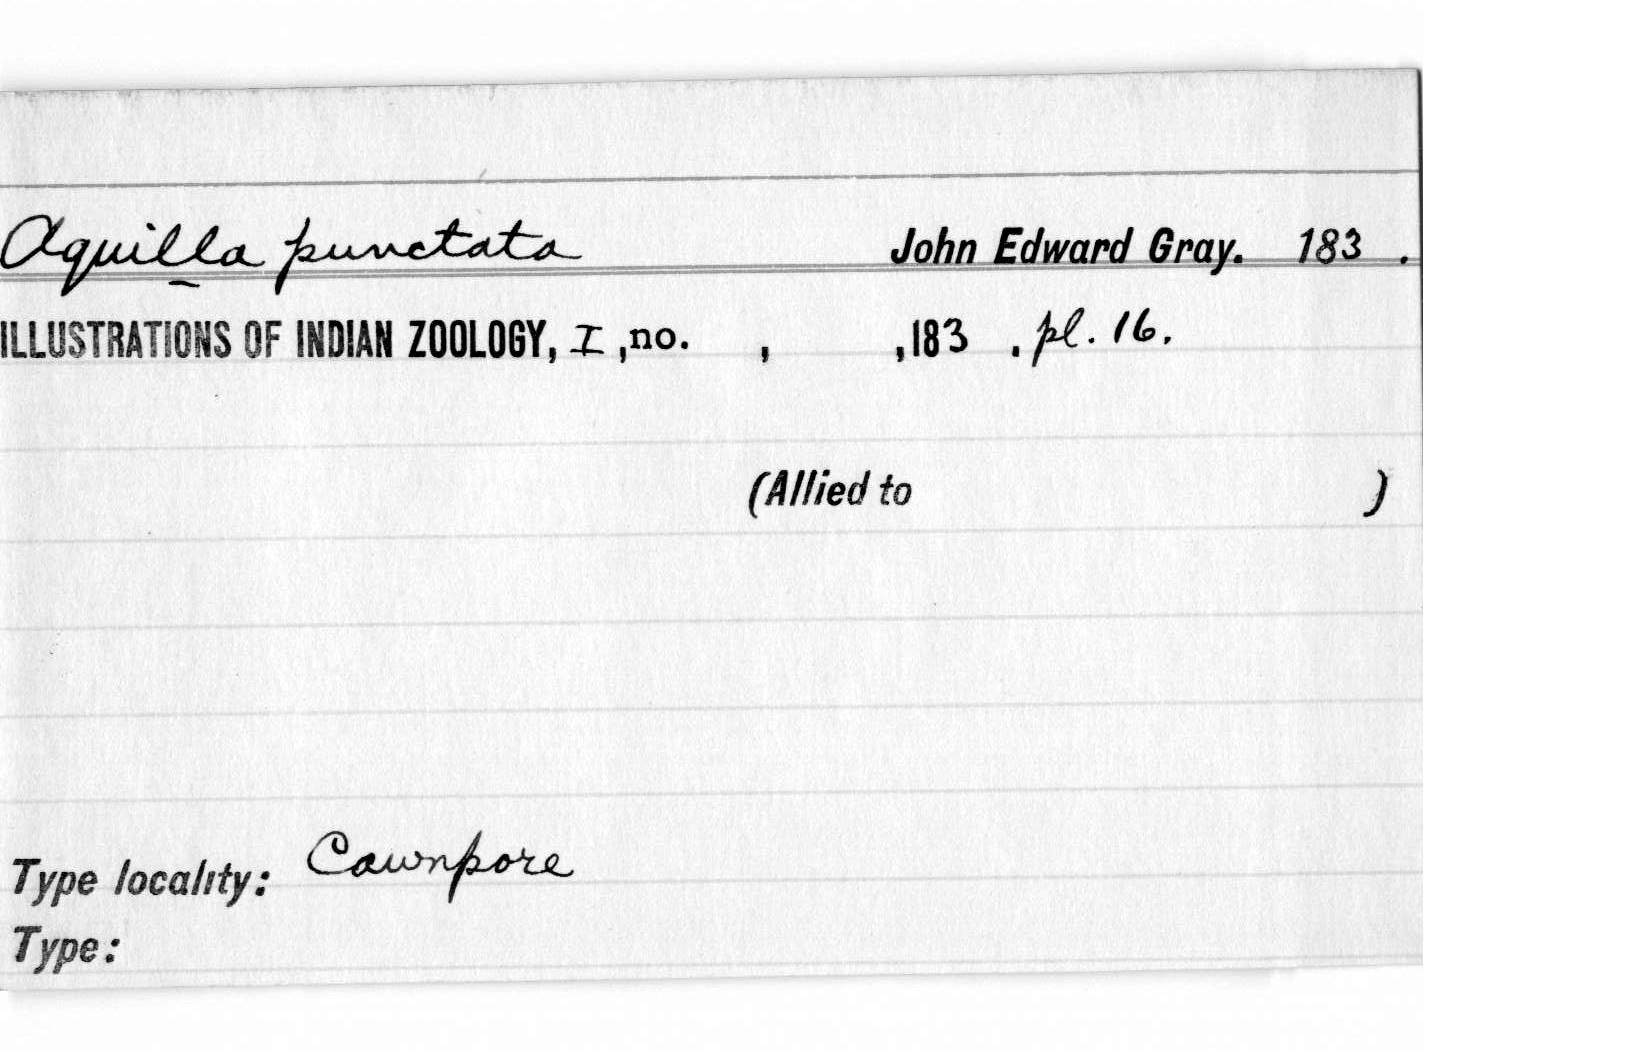 Aquilla punctata John Edward Gray. 183 .
ILLUSTRATIONS OF INDIAN ZOOLOGY, I ,no. , ,183 , pl. 16.
(Allied to )
Type locality: Cawnpore
Type: